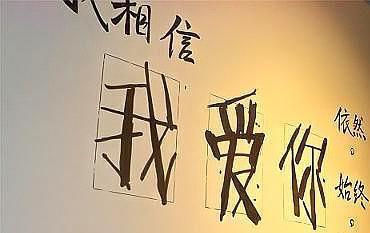 我相信
我爱你
依然。
始终。